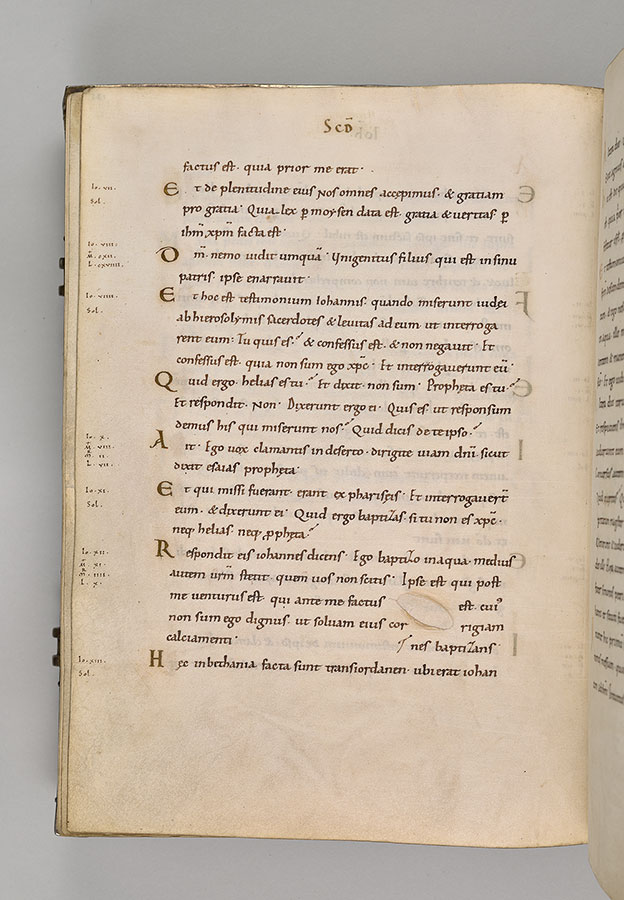 Scd̄
factus est· quia prior me erat·
Io· vii·
Et de plenitudine eius nos omnes accepimus· & gratiam
Sol·
pro gratia· Quia lex p̱ moysen data est· gratia & ueritas p̱
ihm̄ xpm̄ facta est·
Io· viii·
m̄· cxii·
L· cxviiii·
Dm̄· nemo uidit umquā· Vnigenitus filius· qui est in sinu
patris· ipse enarrauit·
Io· viiii·
Et hoc est testimonium Iohannis· quando miserunt iudei
Sol·
ab hierosolymis sacerdotes & leuitas ad eum· ut interroga
rent eum· Tu quis es? & confessus est· & non negauit· Et
confessus est· quia non sum ego xp̄c· Et interrogauerunt eū·
Quid ergo· helias es tu? Et dixit· non sum· Propheta es tu?
Et respondit· Non· Dixerunt ergo ei· Quis es· ut responsum
demus his qui miserunt nos? Quid dicis de te ipso?
Io· x·
m̄· viii·
m̄· ii·
L· vii·
Ait· Ego uox clamantis in deserto· dirigite uiam dn̄i· sicut
dixit esaias propheta·
Io· xi·
Et qui missi fuerant· erant ex phariseis· Et interrogauert̄
Sol·
eum· & dixerunt ei· Quid ergo baptizas· si tu non es xp̄c·
neq· helias· neq· ꝓpheta?
Io· xii·
Respondit eis iohannes dicens· Ego baptizo in aqua· medius
m̄· xi·
m̄· iiii·
L· x·
autem ur̄m stetit· quem uos non scitis· Ipse est qui post
me uenturus est· qui ante me factus est· cui᾽
non sum ego dignus· ut soluam eius corrigiam
calciamenti·
nes baptizans·
Io· xiii·
Hęc in bethania facta sunt transiordanen· ubi erat iohan
Sol·